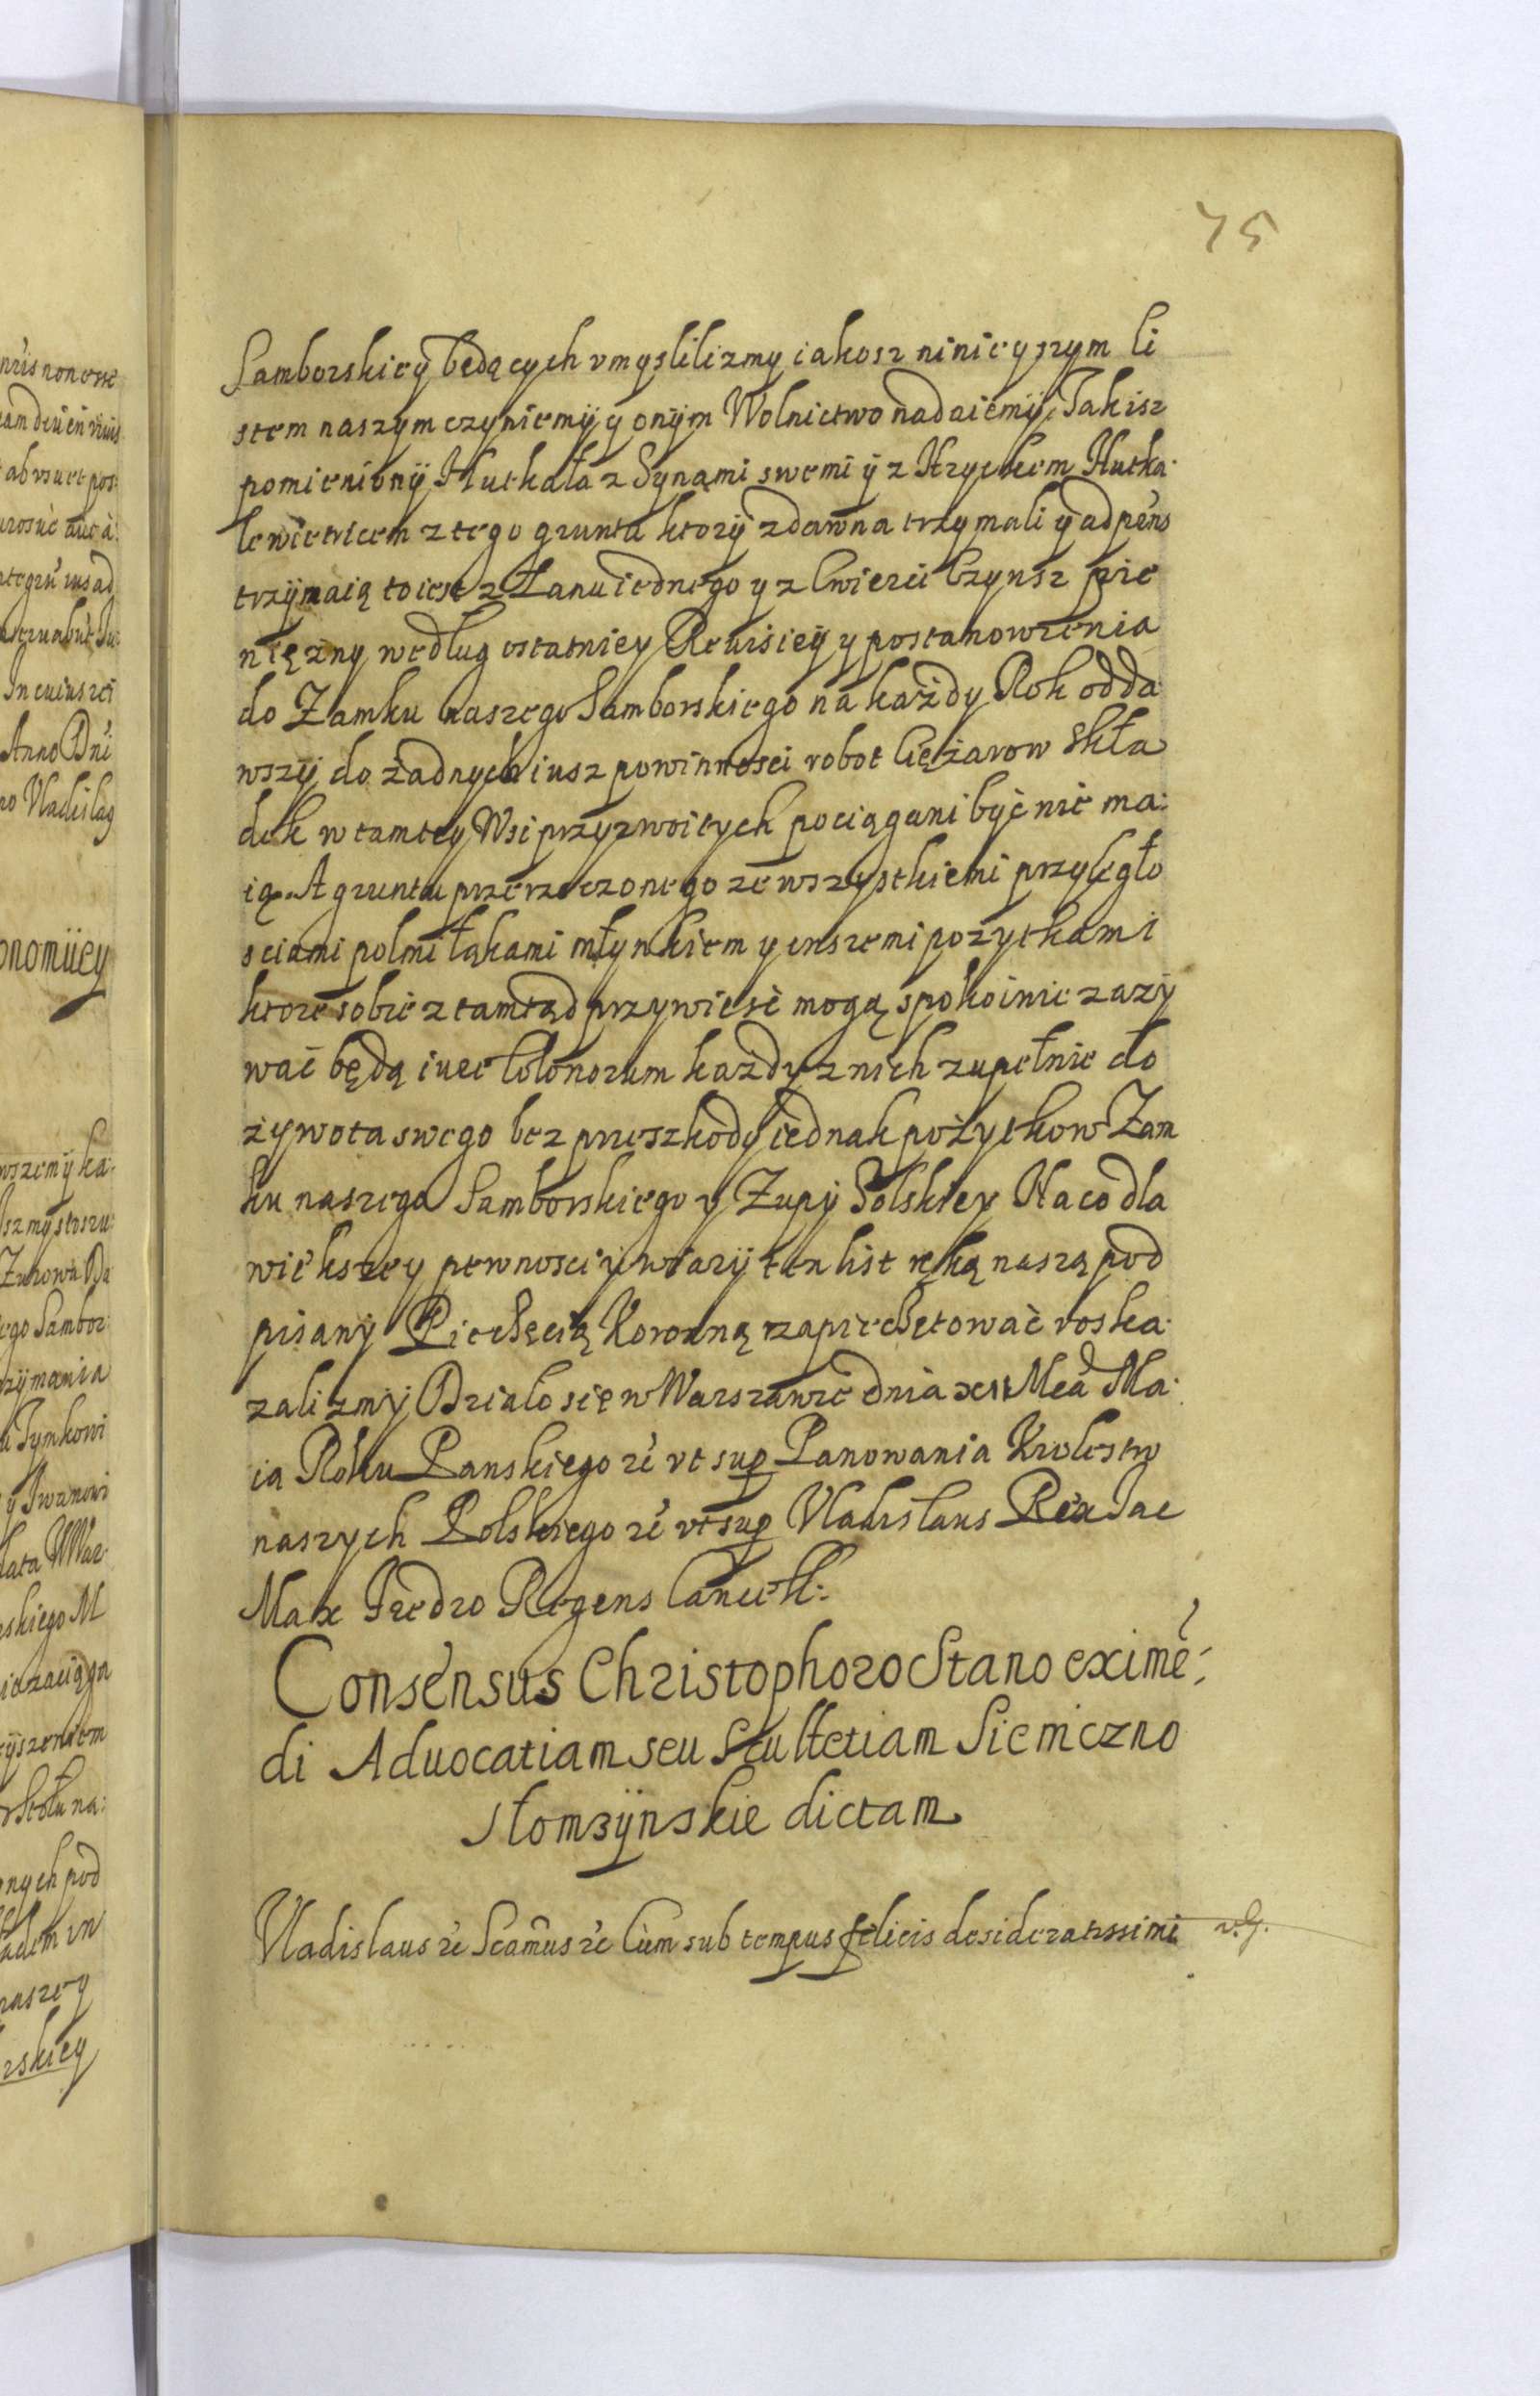 75
Samborskiey będących vmyslilizmy iakosz ninieyszym li
stem naszym czyniemy y onym Wolnictwo nadaiemy, Jakisz
pomieniony Huckała z Synami swemi y z Hryckem Hucka-
lewiewicem z tego grunta ktory zdawna trzymali y ad pẽns
trzymaią to iest z Łanu iednego y z Cwierci Czynsz pie
niężny według ostatniey Rewisiey y postanowienia
do Zamku naszego Samborskiego na każdy Rok odda
wszy do żadnych iusz powinności robot Ciężarow Skła
dek w tamtey Wsi przyzwoitych pociągani być nie ma:
ią. A gruntu przerzeczonego ze wszystkiemi przyległo
sciami polmi łąkami młynkiem y inszemi pożytkami
ktore sobie z tamtąd przywiesć mogą spokoinie zaży
wać będą iure Colonorum każdy z nich zupełnie do
żywota swego bez przeszkody iednak pożytkow Zam
ku naszego Samborskiego y Zupy Solskiey Na co dla
większey pewnosci y wiary ten list ręką naszą pod
pisany Pieczęcią Koronną zapieczętować roska-
zalizmy Działo się w Warszawie dnia Mca Ma-
ia Roku Panskiego ꝛc̃ vt sup Panowania Krolestw
naszych Polskiego ꝛc̃ vt sup Vladislaus Rex Jac
Max Fredro Regens Cancell:
Consensus Christophoro Stano eximẽ:
di Aduocatiam seu Scultetiam Siemiczno
Słomzÿnskie dictam
Vladislaus ꝛc̃ Scam̃us ꝛc̃ Cùm sub tempus felicis desideratissimi